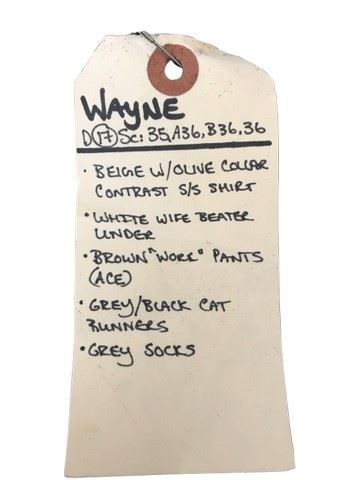 WAYNE
D(17) Sc: 35, A36, B36, 36
• BEIGE W/OLIVE COLLAR
CONTRAST S/S SHIRT
• WHITE WIFE BEATER
UNDER
• BROWN "WORK" PANTS
(ACE)
• GREY/BLACK CAT
RUNNERS
• GREY SOCKS